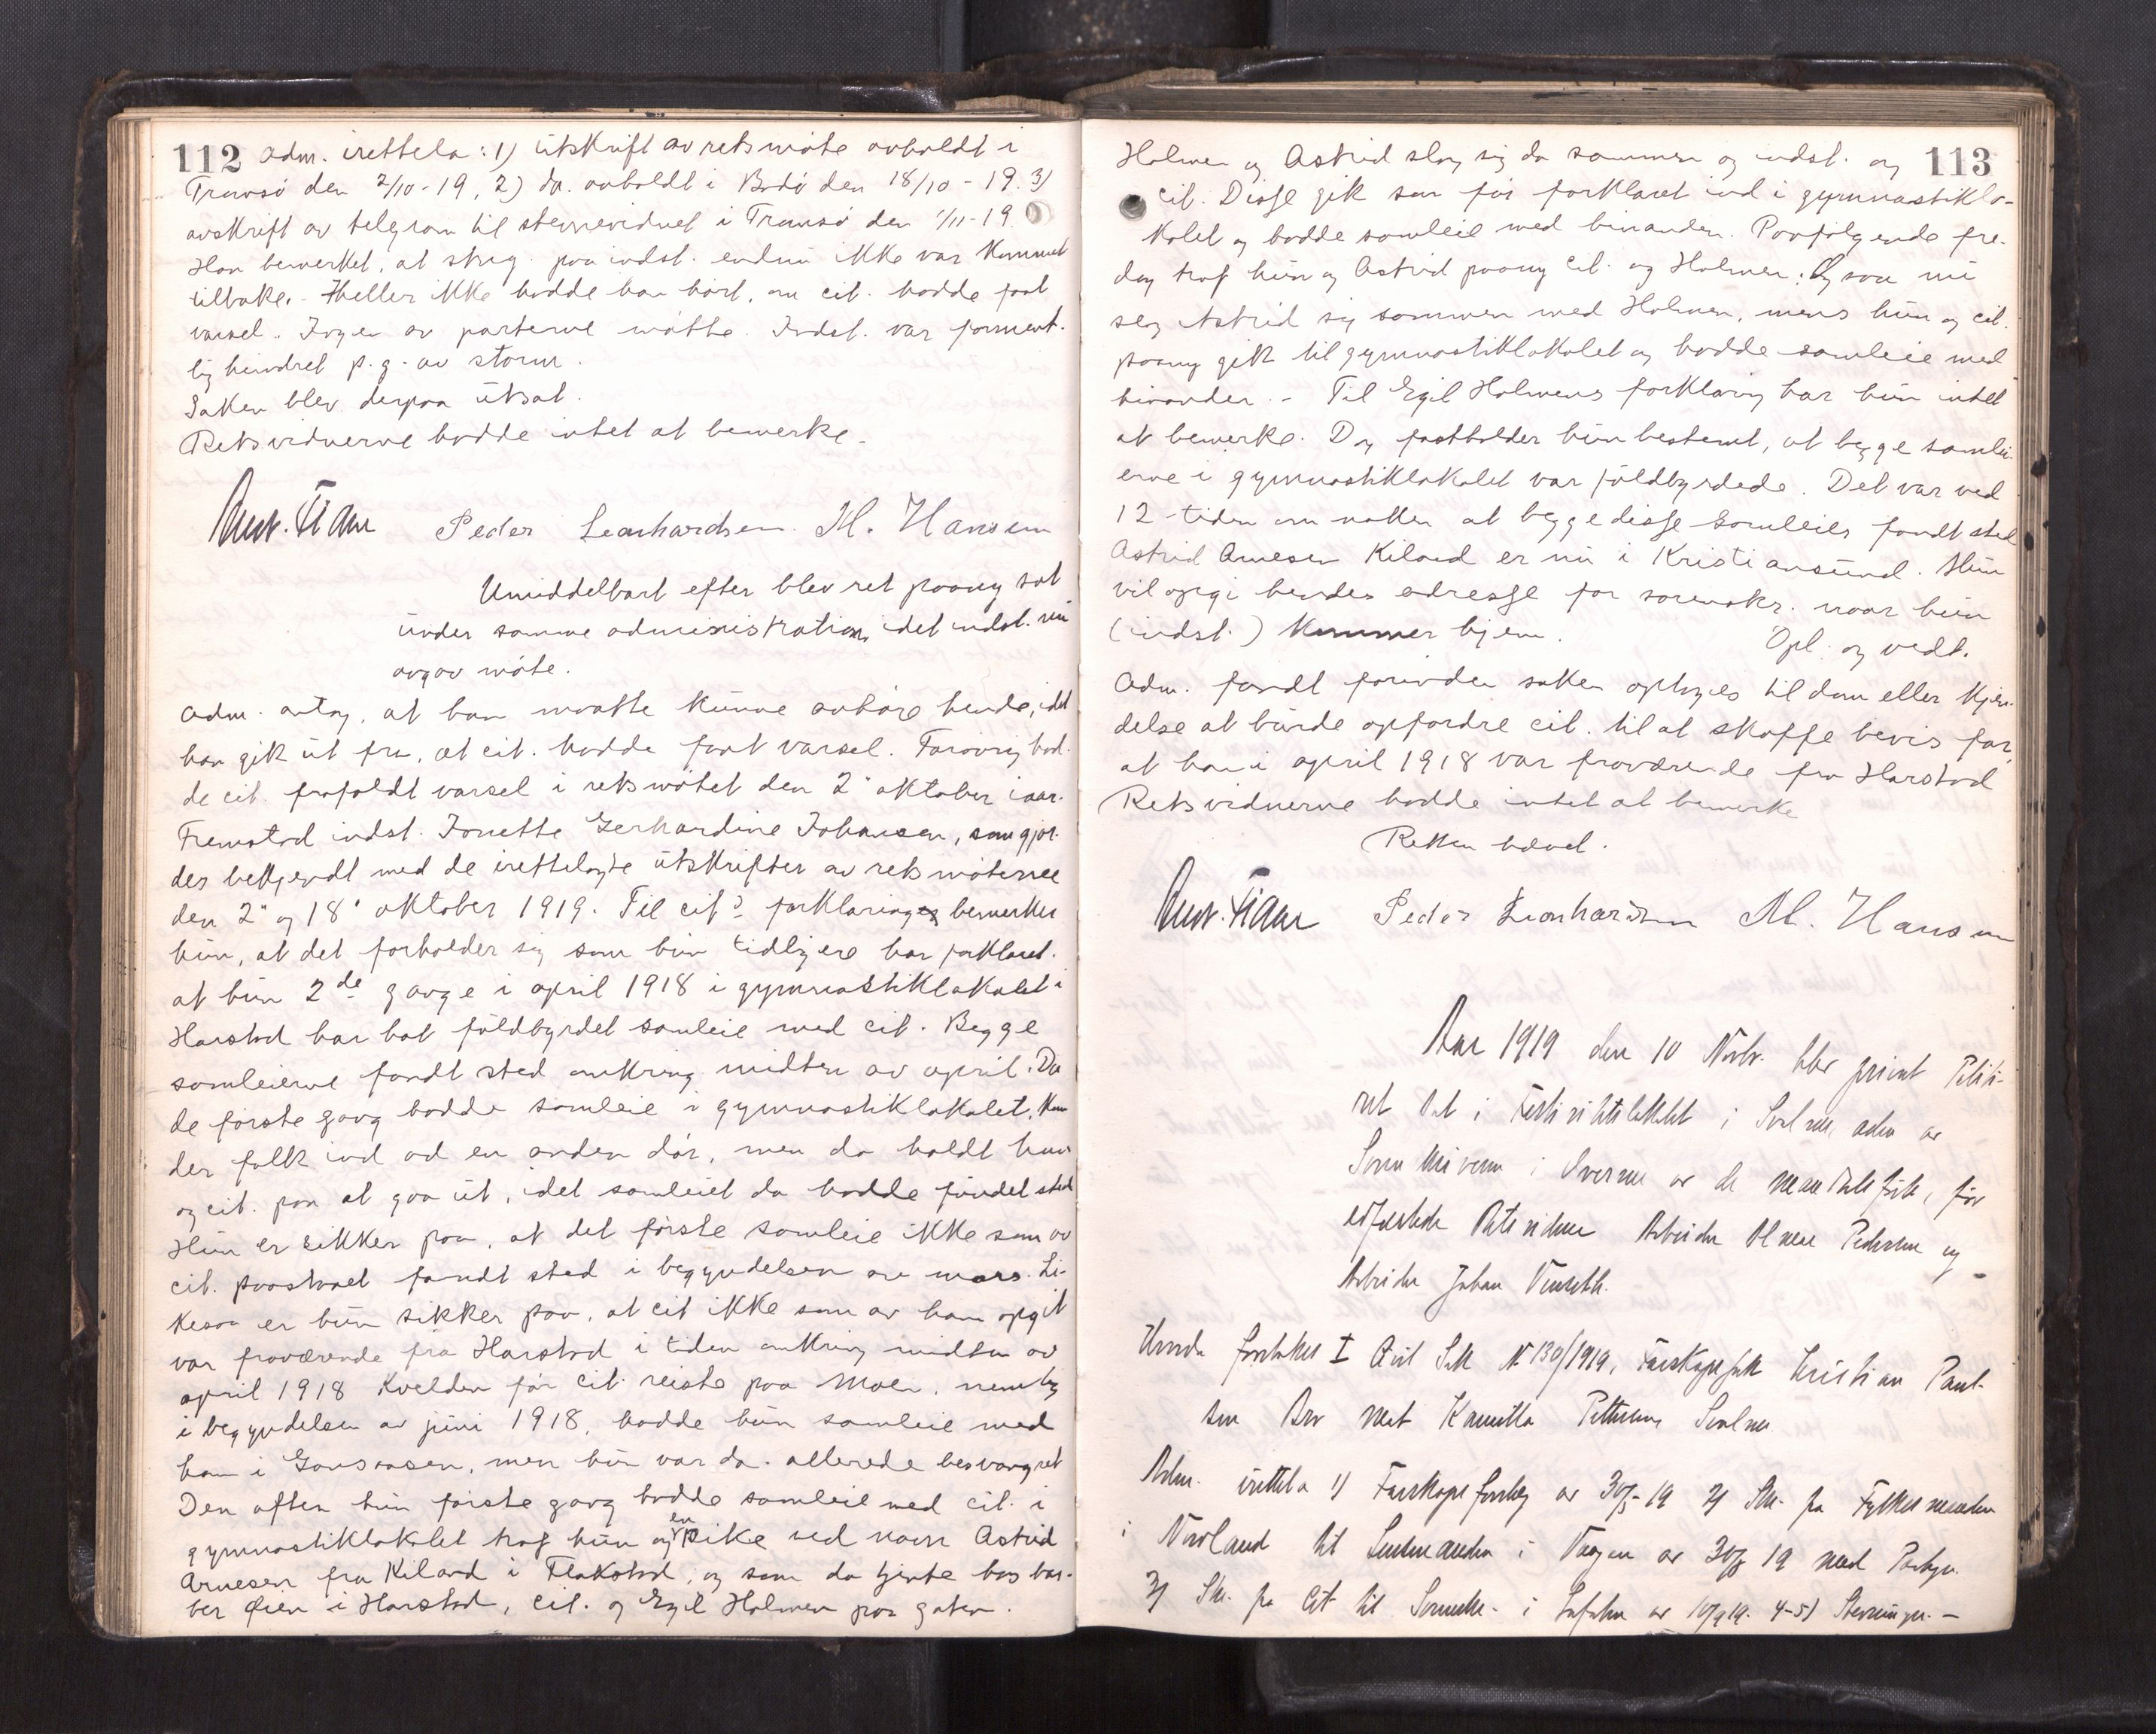 112 Adm. irettela: 1) utskrift av retsmøte avholdt i
Tromsø den 2/10-19, 2) do. avholdt i Bodø den 18/10-19. 3)
avskrift av telegram til stevnevidnet i Tromsø den 1/11-19.
Han bemerket, at stevn. paa indst. endnu ikke var kommet
tilbake. Heller ikke hadde han hørt, om cit. hadde faat
varsel. Ingen av parterne møtte. Indst. var forment-
lig hindret p.g. av storm.
Saken blev derpaa utsat.
Retsvidnerne hadde intet at bemerke.
Peder Leonhardsen M. Hansen
Umiddelbart efter blev ret paany sat
under samme administration, idet indst. nu
avgav møte.
Adm. antog, at han maatte kunne avhøre hende, idet
han gik ut fra, at cit. hadde faat varsel. Forøvrig had-
de cit. frafaldt varsel i retsmøtet den 2' oktober iaar.
Fremstod indst. Jonette Gerhardine Johansen, som gjør-
des bekjendt med de irettelagte utskrifter av retsmøterne
den 2' og 18' oktober 1919. Til cits forklaring bemerker
hun, at det forholder sig som hun tidligere har forklaret.
at hun 2de gange i april 1918 i gymnastiklokalet i
Harstad har hat fuldbyrdet samleie med cit. Begge
samleierne fandt sted omkring midten av april. Da
de første gang hadde samleie i gymnastiklokalet, kom
der folk ind ad en anden dør, men da holdt hun
og cit. paa at gaa ut, idet samleiet da hadde fundet sted
Hun er sikker paa, at det første samleie ikke som av
cit. paastaaet fandt sted i begyndelsen av mars. Li-
kesaa er hun sikker paa, at cit ikke som av ham opgit
var fraværende fra Harstad i tiden omkring midten av
april 1918 Kvelden før cit. reiste paa Moen, nemlig
i begyndelsen av juni 1918, hadde hun samleie med
ham i Gansaasen, men hun var da allerede besvangret
Den aften hun første gang hadde samleie med cit. i
gymnastiklokalet traf hun og en pike ved navn Astrid
Arnesen fra Kiland i Flakstad, og som da tjente hos bar-
ber Øien i Harstad, cit. og Egil Holmen paa gaten.
113
Holmen og Astrid slog sig da sammen og indst. og
cit. Disse gik som før forklaret ind i gymnastiklo-
kalet og hadde samleie med hinanden. Paafølgende fre-
dag traf hun og Astrid paany cit. og Holmen: Og saa nu
slog Astrid sig sammen med Holmen, mens hun og cit.
paany gik til gymnastiklokalet og hadde samleie med
hinanden. - Til Egil Holmens forklaring har hun intet
at bemerke. Dog fastholder hun bestemt, at begge samlei-
erne i gymnastiklokalet var fuldbyrdede. Det var ved
12 tiden om natten at begge disse samleier fandt sted
Astrid Arnesen Kiland er nu i Kristiansund. Hun
vil opgi hendes adresse for sorenskr. naar hun
(indst.) kommer hjem. Opl. og vedt.
Adm. fandt forinden saken optages til dom eller kjen-
delse at burde opfordre cit. til at skaffe bevis for,
at han i april 1918 var fraværende fra Harstad
Retsvidnerne hadde intet at bemerke
Retten hævet.
Peder Leonhardsen M. Hansen
Aar 1919 den 10 Novbr. blev privat Politi-
ret sat i i Svolvær, adm av
Sorenskriveren i av de for
Retsvidner Arbeider Pedersen og
Arbeider Johan
Hvorda foretokes I Civil Sak No 130/1919, Farskapssak Kristian Paul-
sen mot Kamilla Pettersen, Svolvær
Adm. irettela 1) Farskapsforelæg av 30/5-19 2) Skr. fra Fylkesmanden
i Nordland til Lensmanden i Vaagan av 30/8 19 med Paategn.
3) Skr. fra Cit til Sorenskr. i Lofoten av 10/9 19. 4-5) Stevninger. -